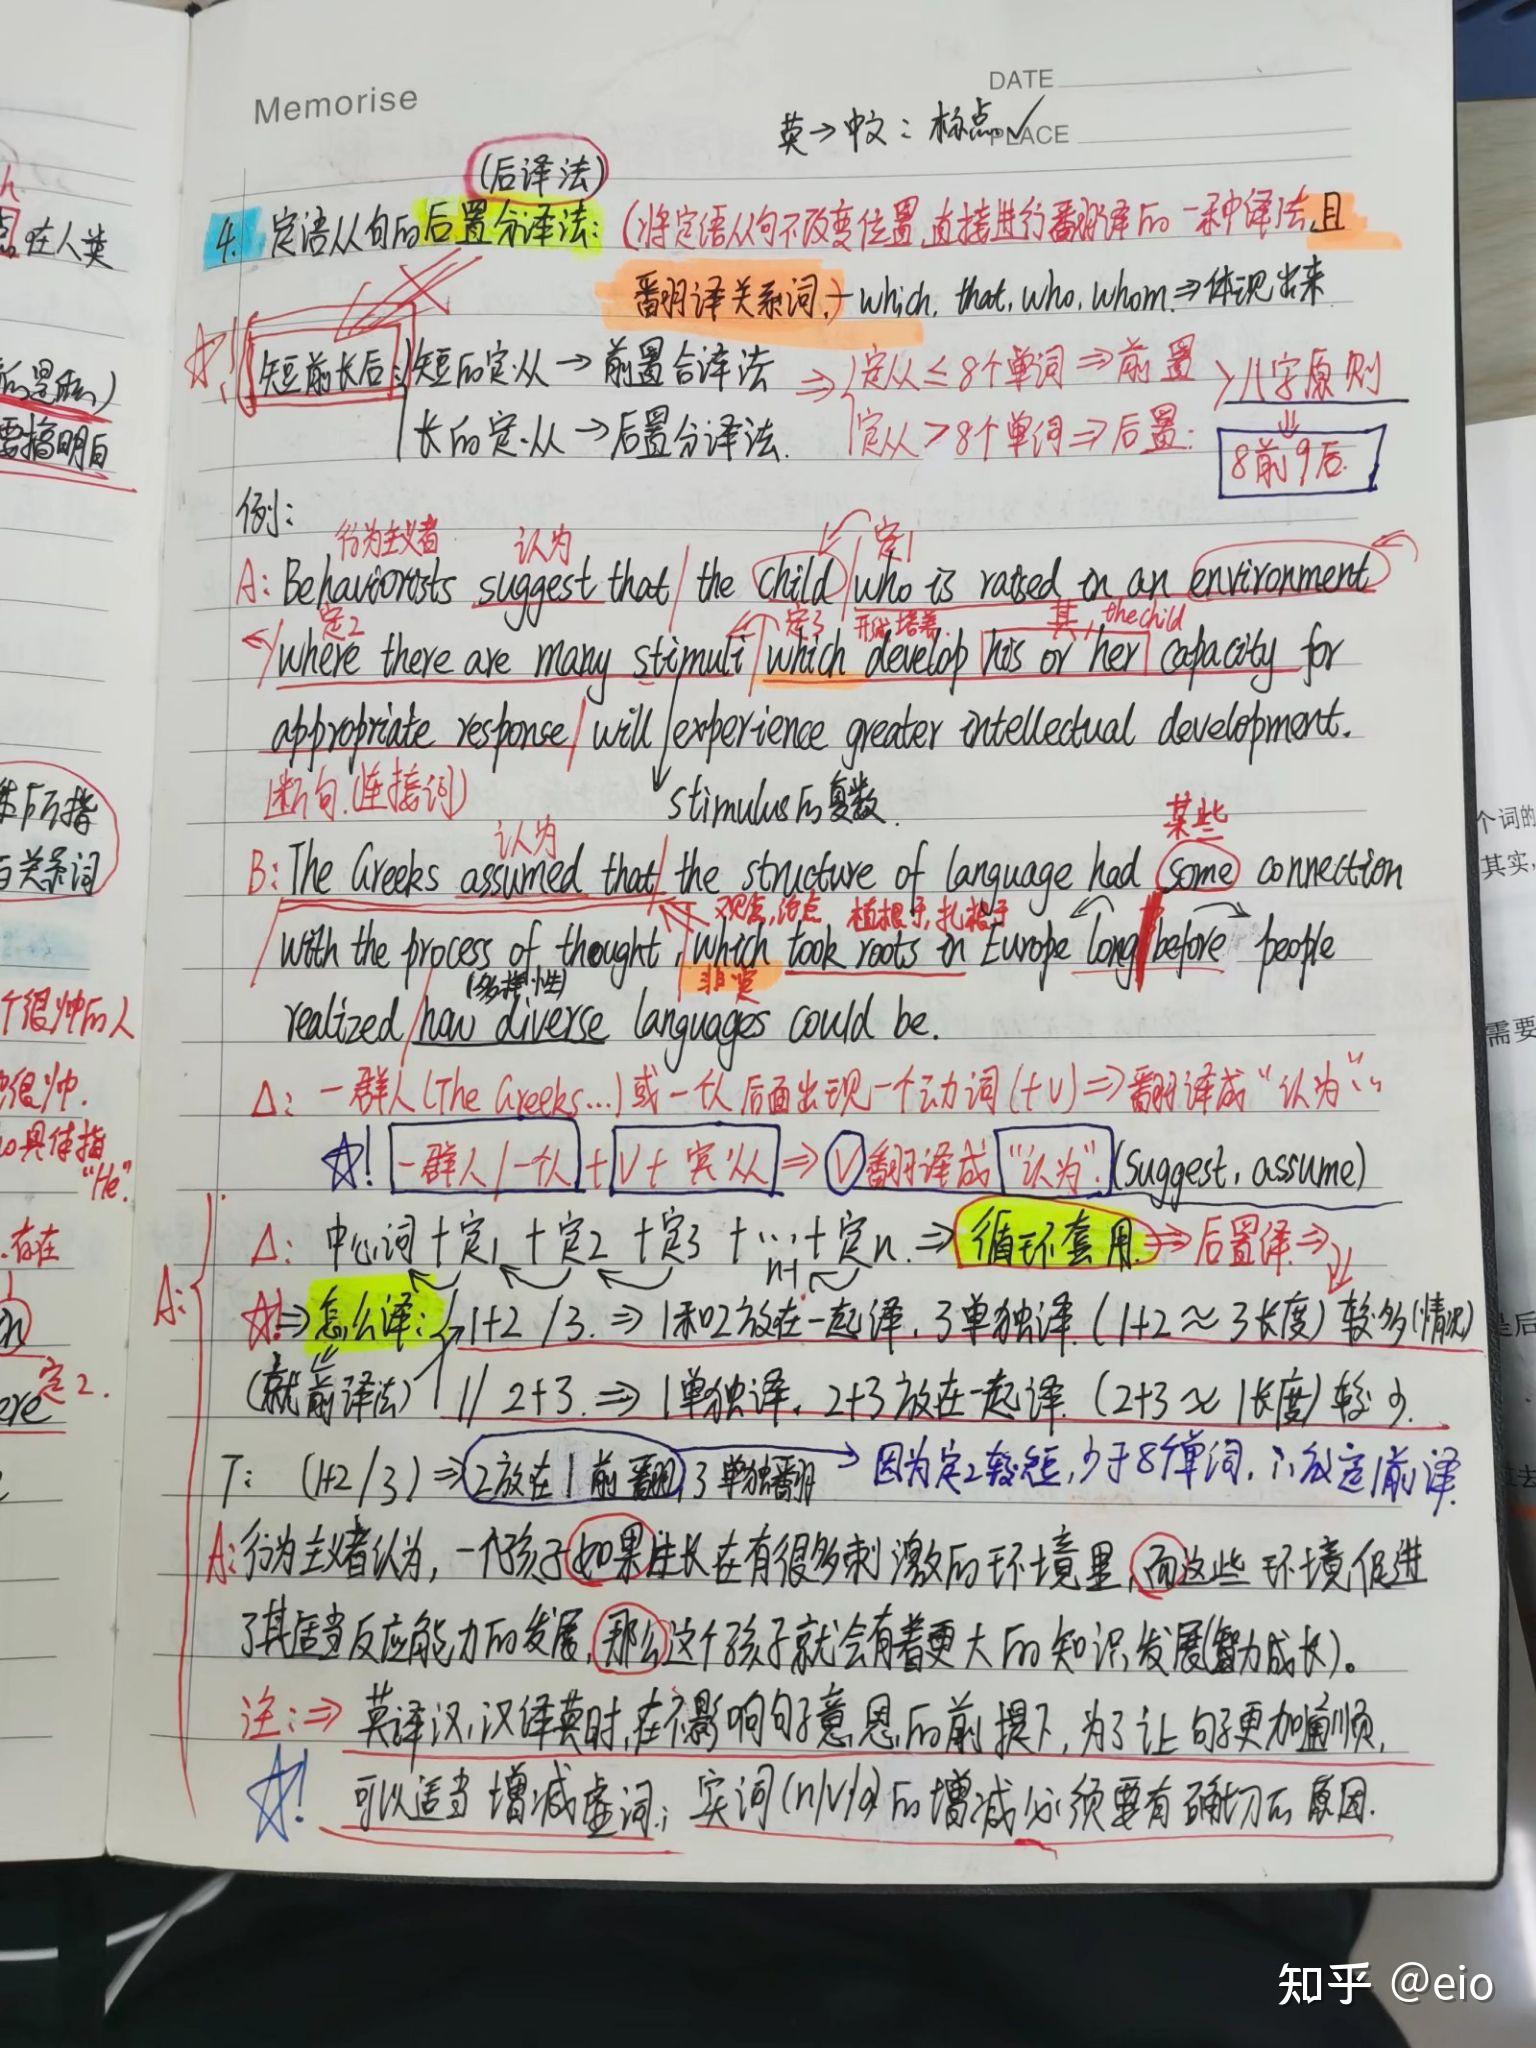 Memorise
DATE
PLACE
英→中文：标点✓
(后译法)
4. 定语从句的后置分译法：(将定语从句不改变位置,直接进行翻译的一种译法,且
翻译关系词,)→which, that, who, whom.⇒体现出来
☆! 短前长后: 短的定.从→前置合译法 ⇒ 定从≤8个单词⇒前置 > 八字原则
长的定.从→后置分译法. 定从>8个单词⇒后置: ⇓
8前9后.
例:
行为主义者 认为 定1
A: Behaviorists suggest that / the child / who is raised in an environment
定2 定3 开发培养 其, the child
/ where there are many stimuli / which develop his or her capacity for
appropriate response / will experience greater intellectual development.
断句.(连接词) stimulus的复数.
认为 某些
B: The Greeks assumed that / the structure of language had some connection
观点,论点 植根于,扎根于
with the process of thought, / which took roots in Europe long before people
(多样性) 非定
realized / how diverse languages could be.
Δ: 一群人(The Greeks...)或一个人后面出现一个动词(+V)⇒翻译成“认为”
☆! 一群人/一个人 + V+宾从 ⇒ V翻译成“认为”.(suggest, assume)
Δ: 中心词+定1+定2+定3+...+定n.⇒循环套用.⇒后置译⇒
n-1
A:
☆!⇒怎么译: 1+2/3.⇒1和2放在一起译,3单独译.(1+2≈3长度)较多(情况)
(就前译法) 1//2+3.⇒1单独译,2+3放在一起译.(2+3≈1长度)较少.
T: (1+2/3)⇒2放在1前翻,3单独翻→因为定2较短,少于8个单词,∴放定1前译.
A: 行为主义者认为,一个孩子如果生长在有很多刺激的环境里,而这些环境促进
了其适当反应能力的发展,那么这个孩子就会有着更大的知识发展(智力成长)。
注:⇒英译汉,汉译英时,在不影响句子意思的前提下,为了让句子更加通顺,
☆! 可以适当增减虚词;实词(n/v/a)的增减必须要有确切的原因.
在人类
要搞明白
与关系词
个很帅的人
也很帅.
具体指
“He”.
存在
定2.
个词的
其实,
需要
是后
过去
知乎 @eio